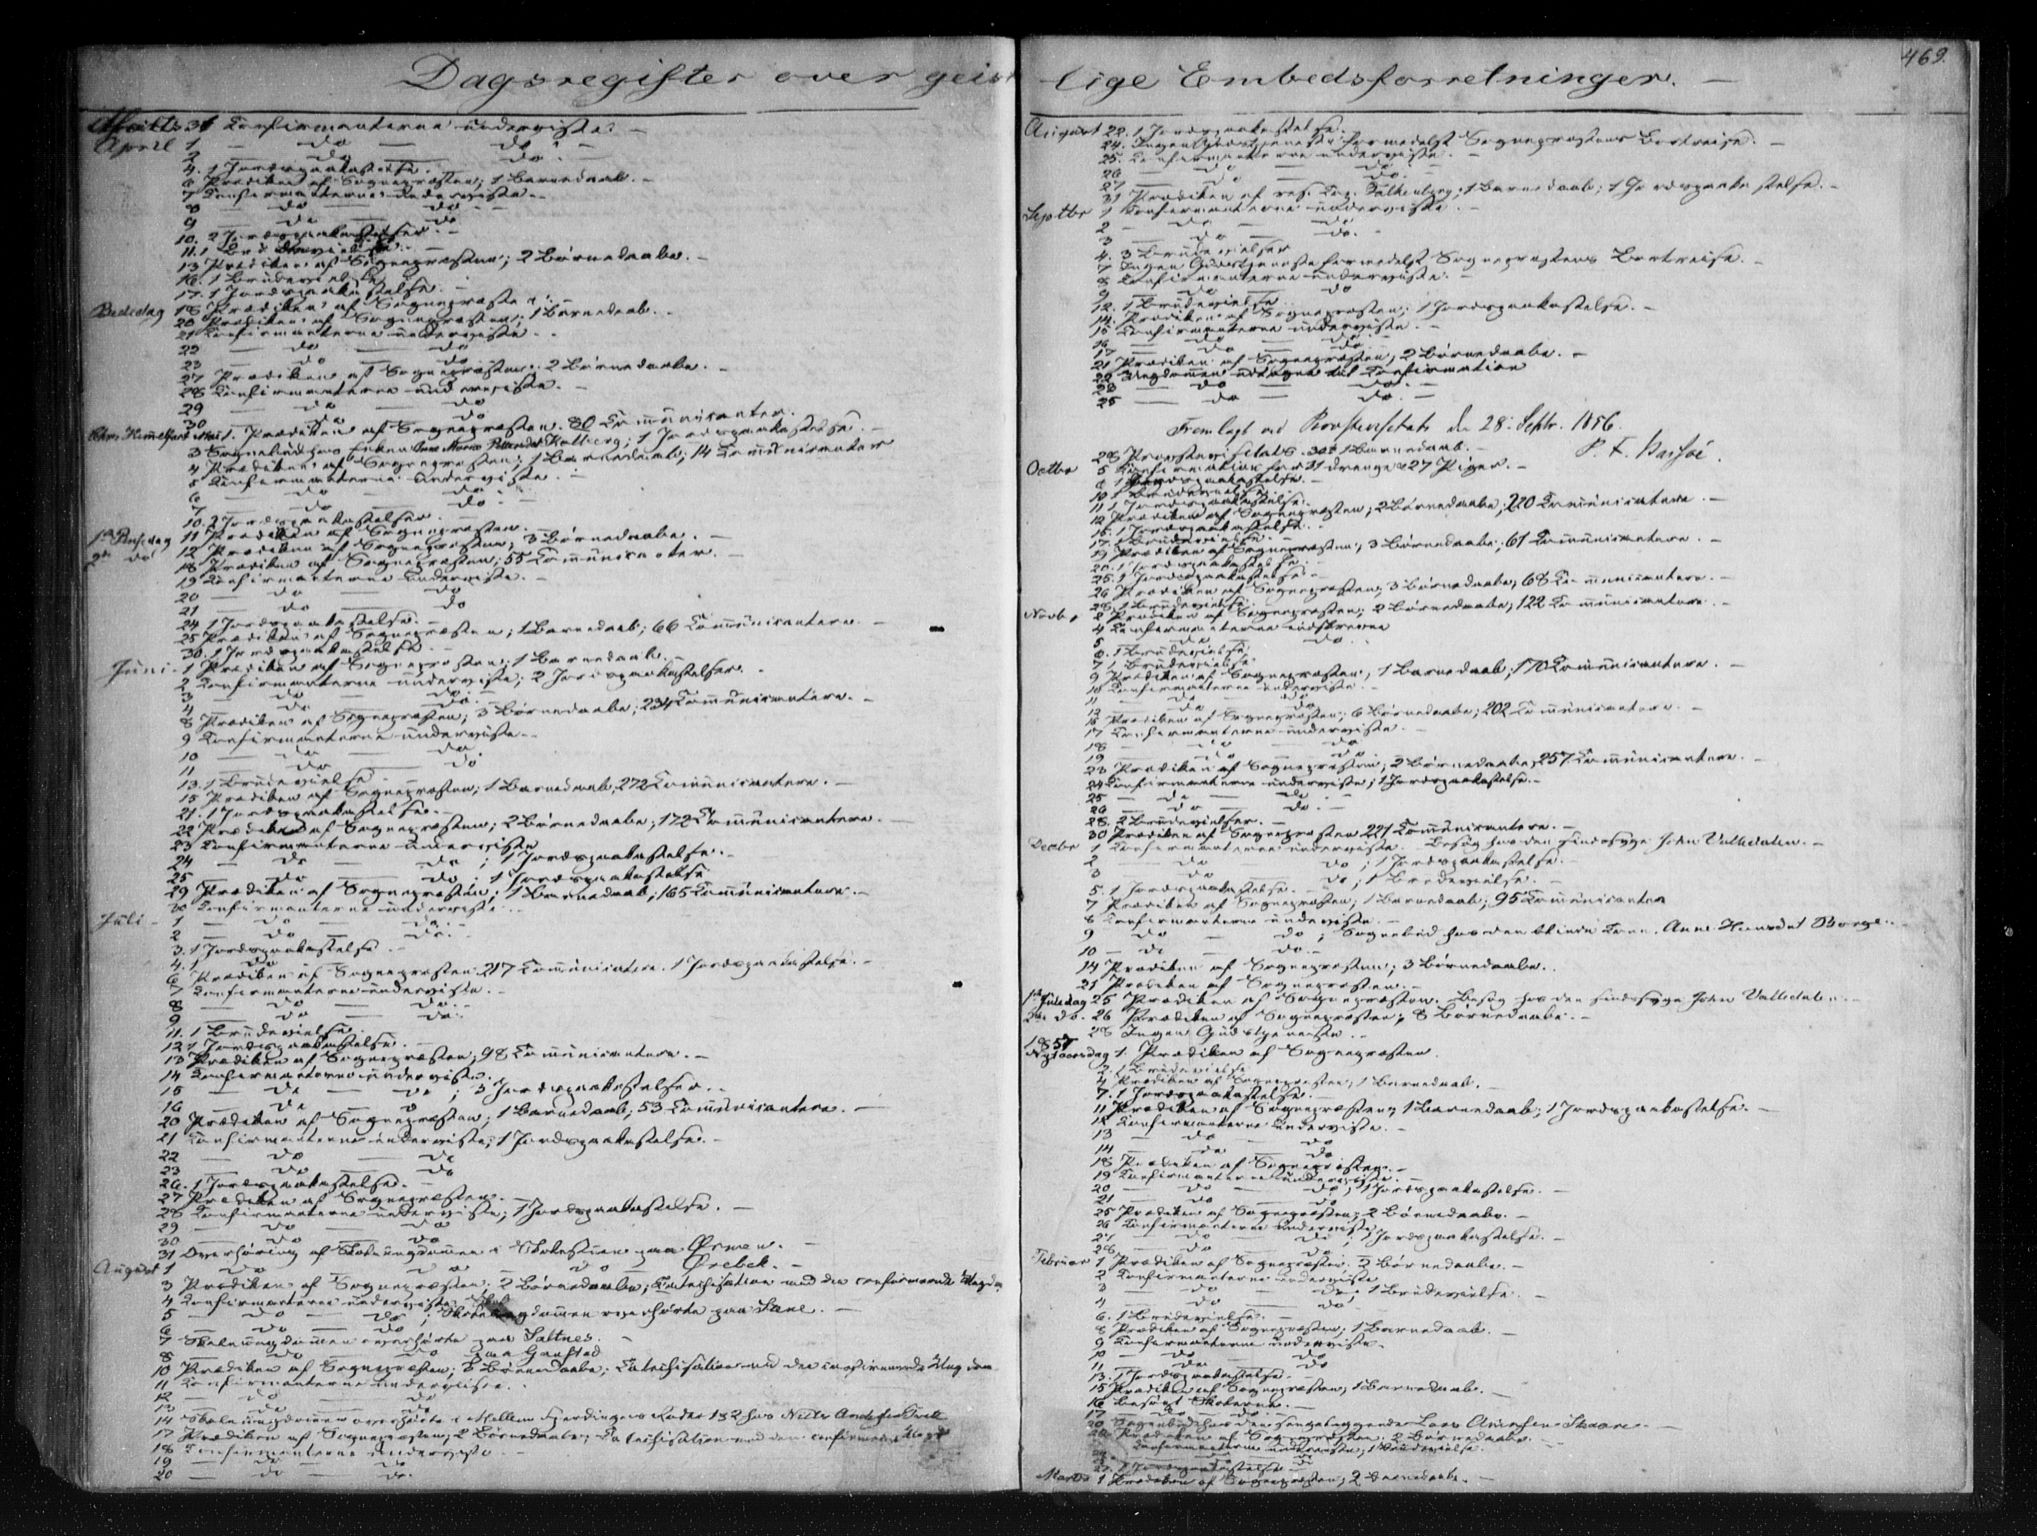 Dagsregister over geistlige Embedsforretninger.
469.
31 Confirmanterne underviste.
April 1 — do — do
2 — do — do
4. 1 Jordspaakastelse.
6 Prædiken af Sognepræsten; 1 Barnedaab.
7 Confirmanterne underviste.
8 — do — do
9 — do — do
10. 2 Jordspaakastelser.
11. 1 Brudevielse.
13 Prædiken af Sognepræsten; 2 Børnedaabe.
16. 1 Brudevielse
17. 1 Jordspaakastelse.
Bededag 18 Prædiken af Sognepræsten.
20 Prædiken af Sognepræsten; 1 Barnedaab.
21 Confirmanterne underviste.
22 — do — do
23 — do — do
27 Prædiken af Sognepræsten. 2 Børnedaabe.
28 Confirmanterne underviste.
29 — do — do
30 — do — do
Chr. Himmelfart Mai 1. Prædiken af Sognepræsten. 80 Communicanter.
3 Sognebud hos Enken Maria Kolberg; 1 Jordspaakastelse.
4 Prædiken af Sognepræsten; 1 Barnedaab; 14 Communicanter
5 Confirmanterne underviste.
6 — do — do
7 — do — do
10. 2 Jordspaakastelser.
1ste Pintsedag 11 Prædiken af Sognepræsten.
2den do 12 Prædiken af Sognepræsten; 3 Børnedaabe.
18 Prædiken af Sognepræsten; 55 Communicanter.
19 Confirmanterne underviste.
20 — do — do
21 — do — do
24 1 Jordspaakastelse.
25 Prædiken af Sognepræsten; 1 Barnedaab; 66 Communicantere.
30. 1 Jordspaakastelse
Juni 1 Prædiken af Sognepræsten; 1 Barnedaab.
2 Confirmanterne underviste; 2 Jordspaakastelser.
3 — do — do
4 — do — do
8 Prædiken af Sognepræsten; 3 Børnedaabe; 234 Communicantere.
9 Confirmanterne underviste.
10 — do — do
11 — do — do
13. 1 Brudevielse
15 Prædiken af Sognepræsten; 1 Barnedaab, 272 Communicantere.
21. 1 Jordspaakastelse.
22 Prædiken af Sognepræsten; 2 Børnedaabe; 172 Communicantere.
23 Confirmanterne underviste
24 — do — do; 1 Jordspaakastelse.
25 — do — do; 1 Jordspaakastelse
29 Prædiken af Sognepræsten; 1 Barnedaab; 165 Communicantere.
30 Confirmanterne underviste.
Juli 1 — do — do.
2 — do — do.
3. 1 Jordspaakastelse
4. 1 do
6 Prædiken af Sognepræsten. 217 Communicantere. 1 Jordspaakastelse.
7 Confirmanterne underviste.
8 — do — do
9 — do — do
11. 1 Brudevielse.
12. 1 Jordspaakastelse.
13 Prædiken af Sognepræsten; 98 Communicantere.
14 Confirmanterne underviste.
15 — do — do; 3 Jordspaakastelser.
16 — do — do
20 Prædiken af Sognepræsten; 1 Barnedaab; 53 Communicantere.
21 Confirmanterne underviste; 1 Jordspaakastelse.
22 — do — do
23 — do — do
26. 1 Jordspaakastelse.
27 Prædiken af Sognepræsten.
28 Confirmanterne underviste; 1 Jordspaakastelse.
29 — do — do
30 — do — do
31 Overhøring af Skoleungdommen i Skolestuen paa Ørmen.
August 1 do do do Ørebek.
3 Prædiken af Sognepræsten; 2 Børnedaabe; Catechisation med den confirmerede Ungdom
4 Confirmanterne underviste.
5 — do — do; Skoleungdommen overhørte paa Lane.
6 — do — do
7 Skoleungdommen overhørte paa Saltnes.
8 — do — do paa Gaustad
10 Prædiken af Sognepræsten; Børnedaabe; Catechisation med den confirmerede Ungdom
11 Confirmanterne underviste.
12 — do — do
13 — do — do
14 Skoleungdommen overhørte i Mellem Fjerdingens Roder 1 & 2 hos
17 Prædiken af Sognepræsten; 2 Børnedaabe; Catechisation med den confirmerede Ungd
18 Confirmanterne underviste.
19 — do — do
20 — do — do.
August 22. 1 Jordspaakastelse.
24. Ingen Gudstjeneste formedelst Sognepræstens Bortreise.
25. Confirmanterne underviste.
26 — do — do.
27 — do — do.
31 Prædiken af Falkenberg; 1 Barnedaab; 1 Jordspaakastelse.
Septbr 1 Confirmanterne underviste.
2 — do — do
3 — do — do.
4. 3 Brudevielser
7 Ingen Gudstjeneste formedelst Sognepræstens Bortreise.
8 Confirmanterne underviste.
9 — do — do
12. 1 Brudevielse.
14. Prædiken af Sognepræsten; 1 Jordspaakastelse.
15 Confirmanterne underviste.
16 — do — do
17 — do — do.
21 Prædiken af Sognepræsten; 2 Børnedaabe.
22 Ungdommen udtagne til Confirmation
23 — do — do.
25 — do — do.
Fremlagt ved Provstevisitats den 28. Septr. 1856.
28 Provstevisitats. 1 Barnedaab.
Octbr 5 Confirmation for 31 Drenge & 27 Piger.
8 1 Jordspaakastelse.
10 1 Brudevielse.
11 1 Jordspaakastelse.
12 Prædiken af Sognepræsten; 2 Børnedaabe; 220 Communicantere.
15. 1 Jordspaakastelse.
17. 1 Brudevielse.
19 Prædiken af Sognepræsten; 3 Børnedaabe; 61 Communicantere.
20. 1 Jordspaakastelse.
25. 1 Jordspaakastelse.
26 Prædiken af Sognepræsten; 3 Børnedaabe; 68 Communicantere.
28. 1 Brudevielse.
Novbr 2 Prædiken af Sognepræsten; 2 Børnedaabe; 122 Communicantere.
4 Confirmanterne indskrevne
5 — do — do.
6. 1 Brudevielse.
7 1 Brudevielse
9 Prædiken af Sognepræsten; 1 Barnedaab; 170 Communicantere.
10 Confirmanterne underviste.
11 — do — do
12 — do — do
16 Prædiken af Sognepræsten; 6 Børnedaabe; 202 Communicantere.
17 Confirmanterne underviste.
18 — do — do
19 — do — do
23 Prædiken af Sognepræsten; 2 Børnedaabe; 257 Communicantere.
24 Confirmanterne underviste; 1 Jordspaakastelse.
25 — do — do.
26 — do — do.
28. 2 Brudevielser.
30 Prædiken af Sognepræsten 221 Communicantere.
Decbr 1 Confirmanterne underviste. Besøg hos den sindssyge John Valledalen.
2 — do — do; 1 Jordspaakastelse.
3 — do — do; 1 Brudevielse.
5. 1 Jordspaakastelse.
7 Prædiken af Sognepræsten; 1 Barnedaab; 95 Communicanter
8 Confirmanterne underviste.
9 do — do; Sognebud hos den blinde Anne Hansdat Borge.
10 — do — do.
14 Prædiken af Sognepræsten; 3 Børnedaabe.
21 Prædiken af Sognepræsten.
1ste Juledag 25 Prædiken af Sognepræsten. Besøg hos den sindssyge John Valledalen.
2den do. 26 Prædiken af Sognepræsten; 8 Børnedaabe.
28 Ingen Gudstjeneste.
1857
Nytaarsdag 1. Prædiken af Sognepræsten.
2 1 Brudevielse
4 Prædiken af Sognepræsten; 1 Barnedaab.
7. 1 Jordspaakastelse.
11 Prædiken af Sognepræsten; 1 Barnedaab; 1 Jordspaakastelse.
12 Confirmanterne underviste.
13 — do — do
14 — do — do
18 Prædiken af Sognepræsten.
19 Confirmanterne underviste.
20 — do — do; 1 Jordspaakastelse.
21 — do — do
25 Prædiken af Sognepræsten; 2 Børnedaabe.
26 Confirmanterne underviste
27 — do — do; 1 Jordspaakastelse.
28 — do — do
Februar 1 Prædiken af Sognepræsten; 2 Børnedaabe.
2 Confirmanterne underviste
3 — do — do; 1 Brudevielse.
4 — do — do
6. 1 Brudevielse.
8 Prædiken af Sognepræsten; 1 Barnedaab.
9 Confirmanterne underviste.
10 — do — do
11 — do — do
13. 1 Jordspaakastelse.
15 Prædiken af Sognepræsten; 1 Barnedaab.
16 Besøgt Skolerne.
17 — do — do.
20 Sognebud hos den sengeliggende Lars Skaare
Prædiken af Sognepræsten. 2 Børnedaabe.
Confirmanterne underviste; 1 Brudevielse.
1 Jordspaakastelse
Marts 1 Prædiken af Sognepræsten; 2 Børnedaabe.